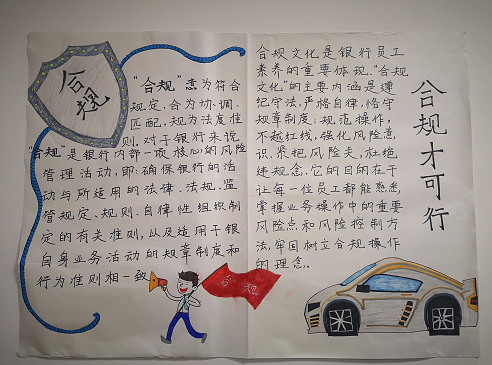 合规
"合规"意为符合
规定、合为协调、
匹配,规为法度准
则。对于银行来说
"合规"是银行内部一项核心的风险
管理活动,即:确保银行的活
动与所适用的法律、法规、监
管规定、规则、自律性组织制
定的有关准则,以及适用于银
自身业务活动的规章制度和
行为准则相一致
合规
合规文化是银行员工
素养的重要体现。"合规
文化"的主要内涵是遵
纪守法,严格自律,恪守
规章制度;规范操作,
不越红线,强化风险意
识、紧把风险关,杜绝
违规念,它的目的在于
让每一位员工都能熟悉,
掌握业务操作中的重要
风险点和风险控制方
法,牢固树立合规操作
的理念。
合规才可行